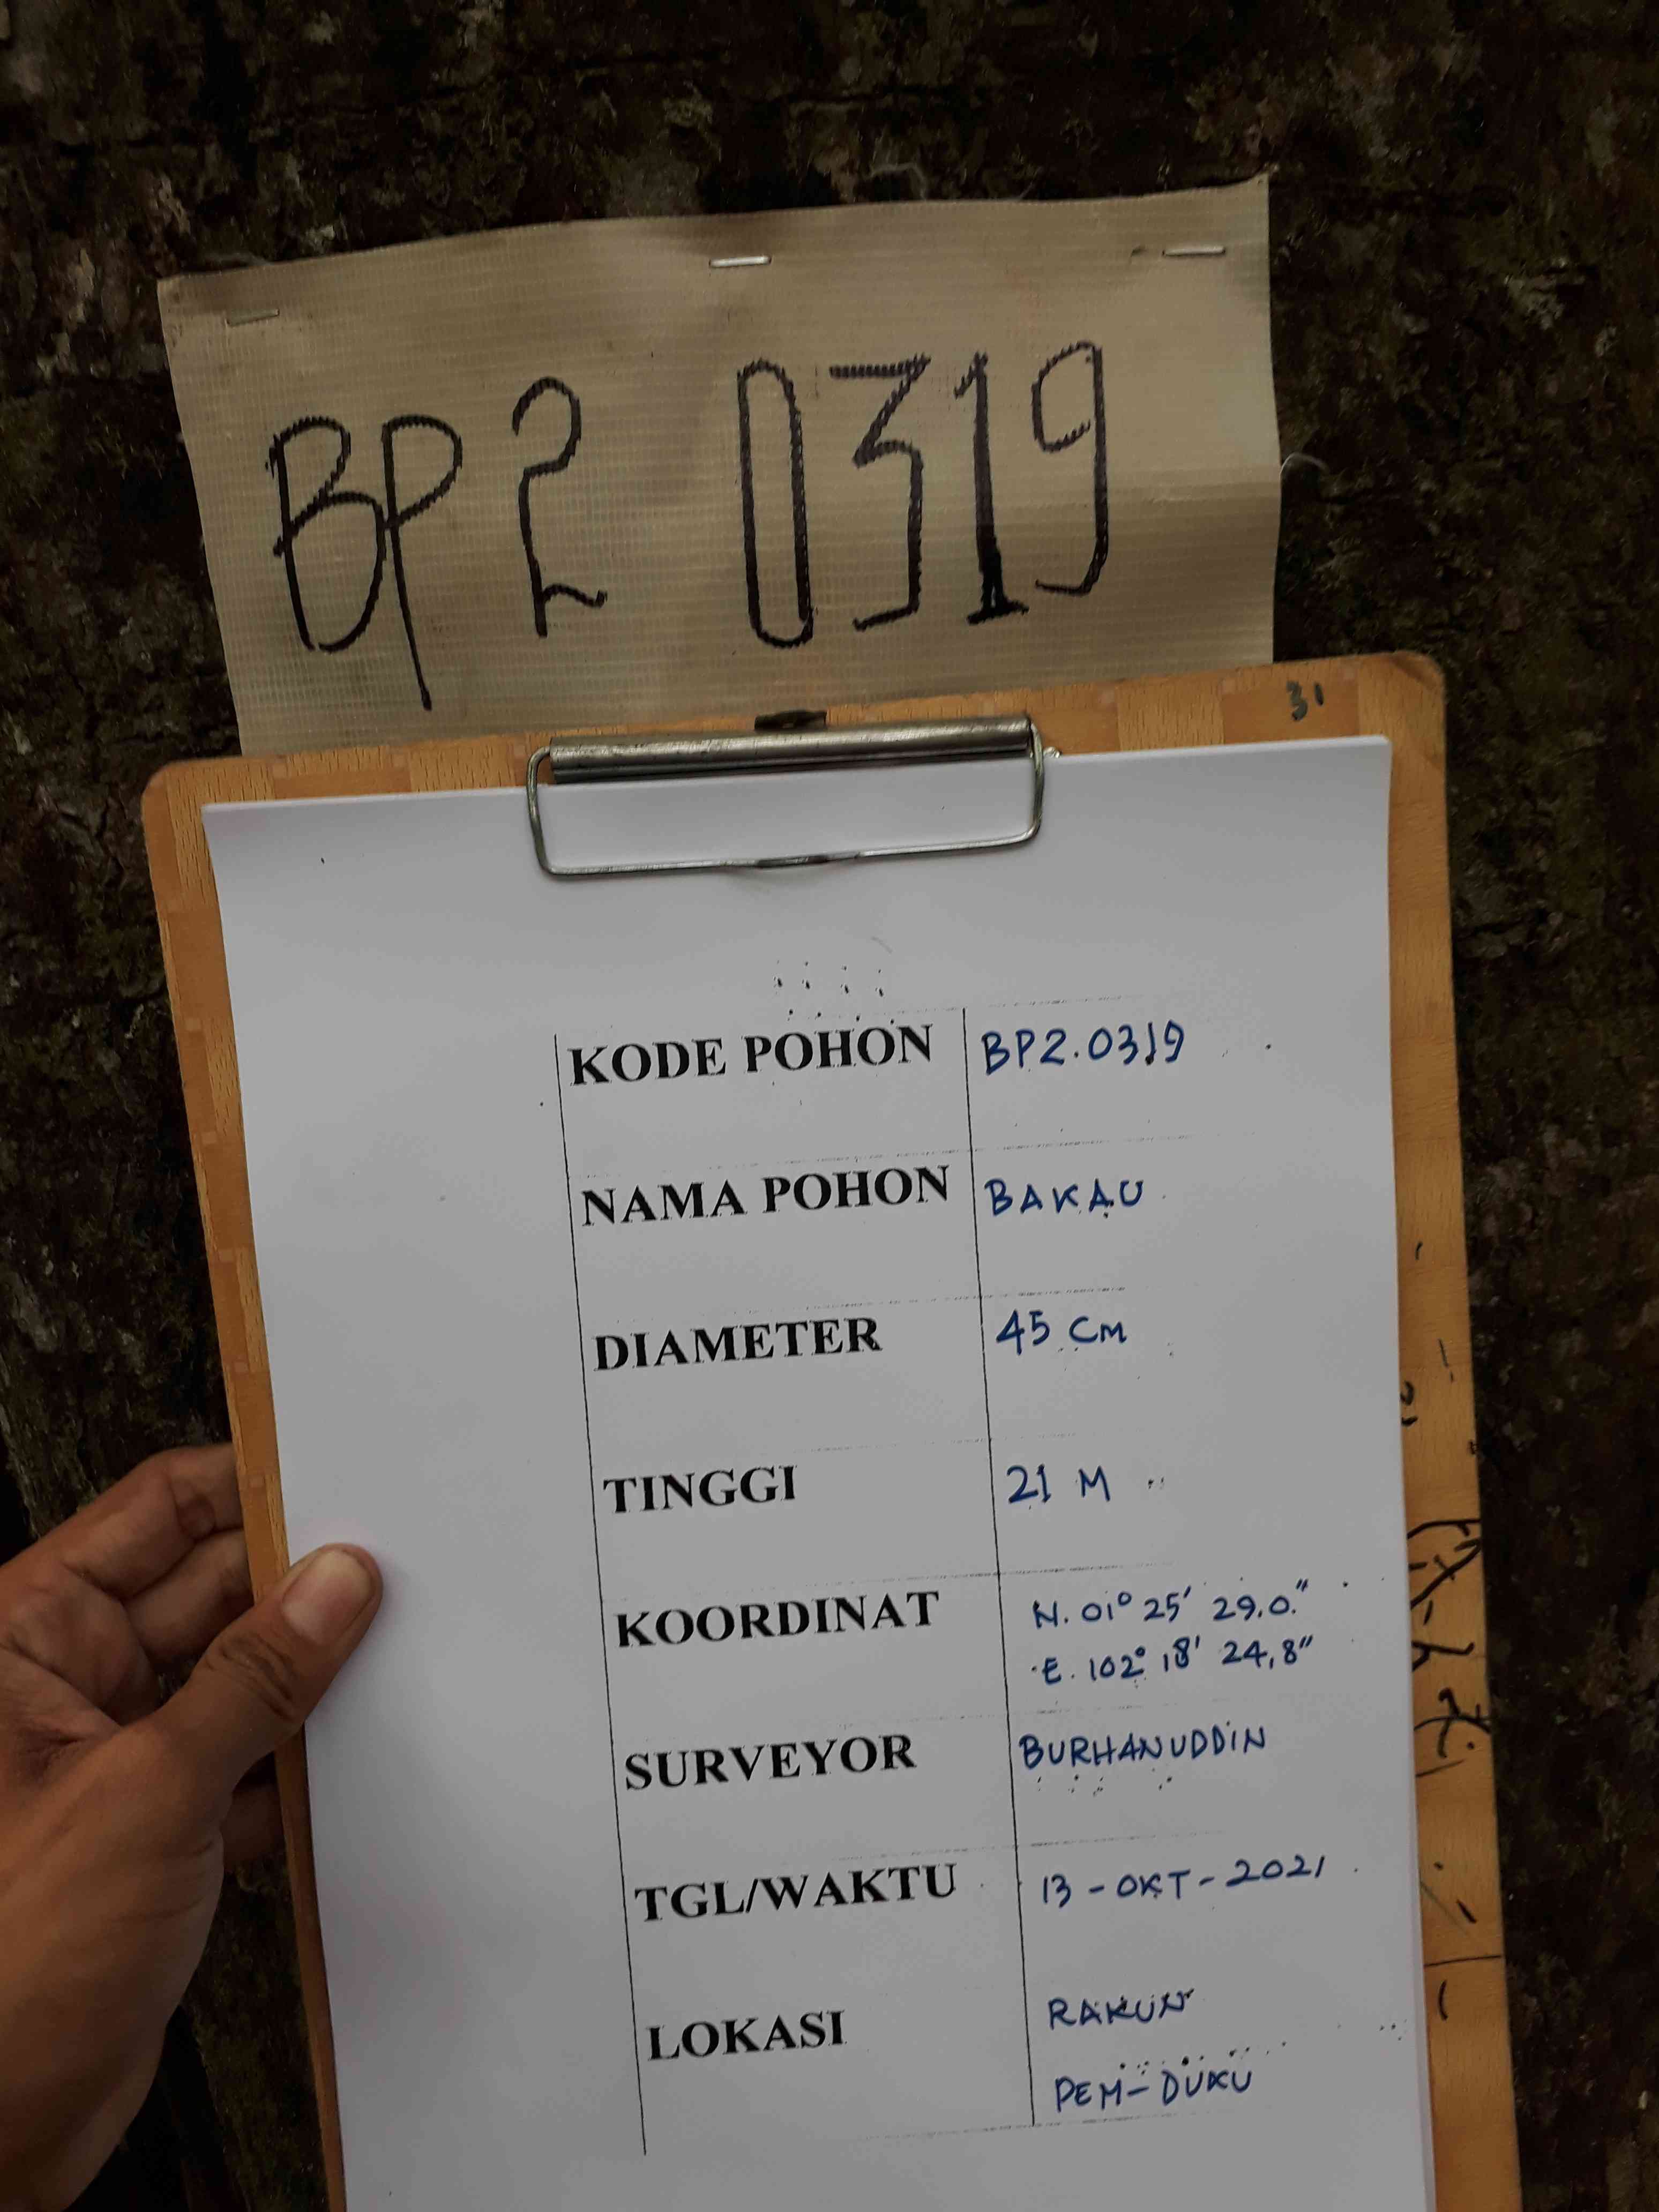 BP2 0319
31
KODE POHON BP2.0319
NAMA POHON BAKAU
DIAMETER 45 CM
TINGGI 21 M
KOORDINAT N. 01° 25' 29.0"
E. 102° 18' 24,8"
SURVEYOR BURHANUDDIN
TGL/WAKTU 13-OKT-2021
LOKASI RAKUN
PEM-DUKU